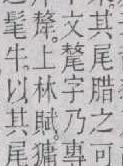 其尾腊之可
文氂字乃專
犛。上林賦。㺎
髦牛以其尾